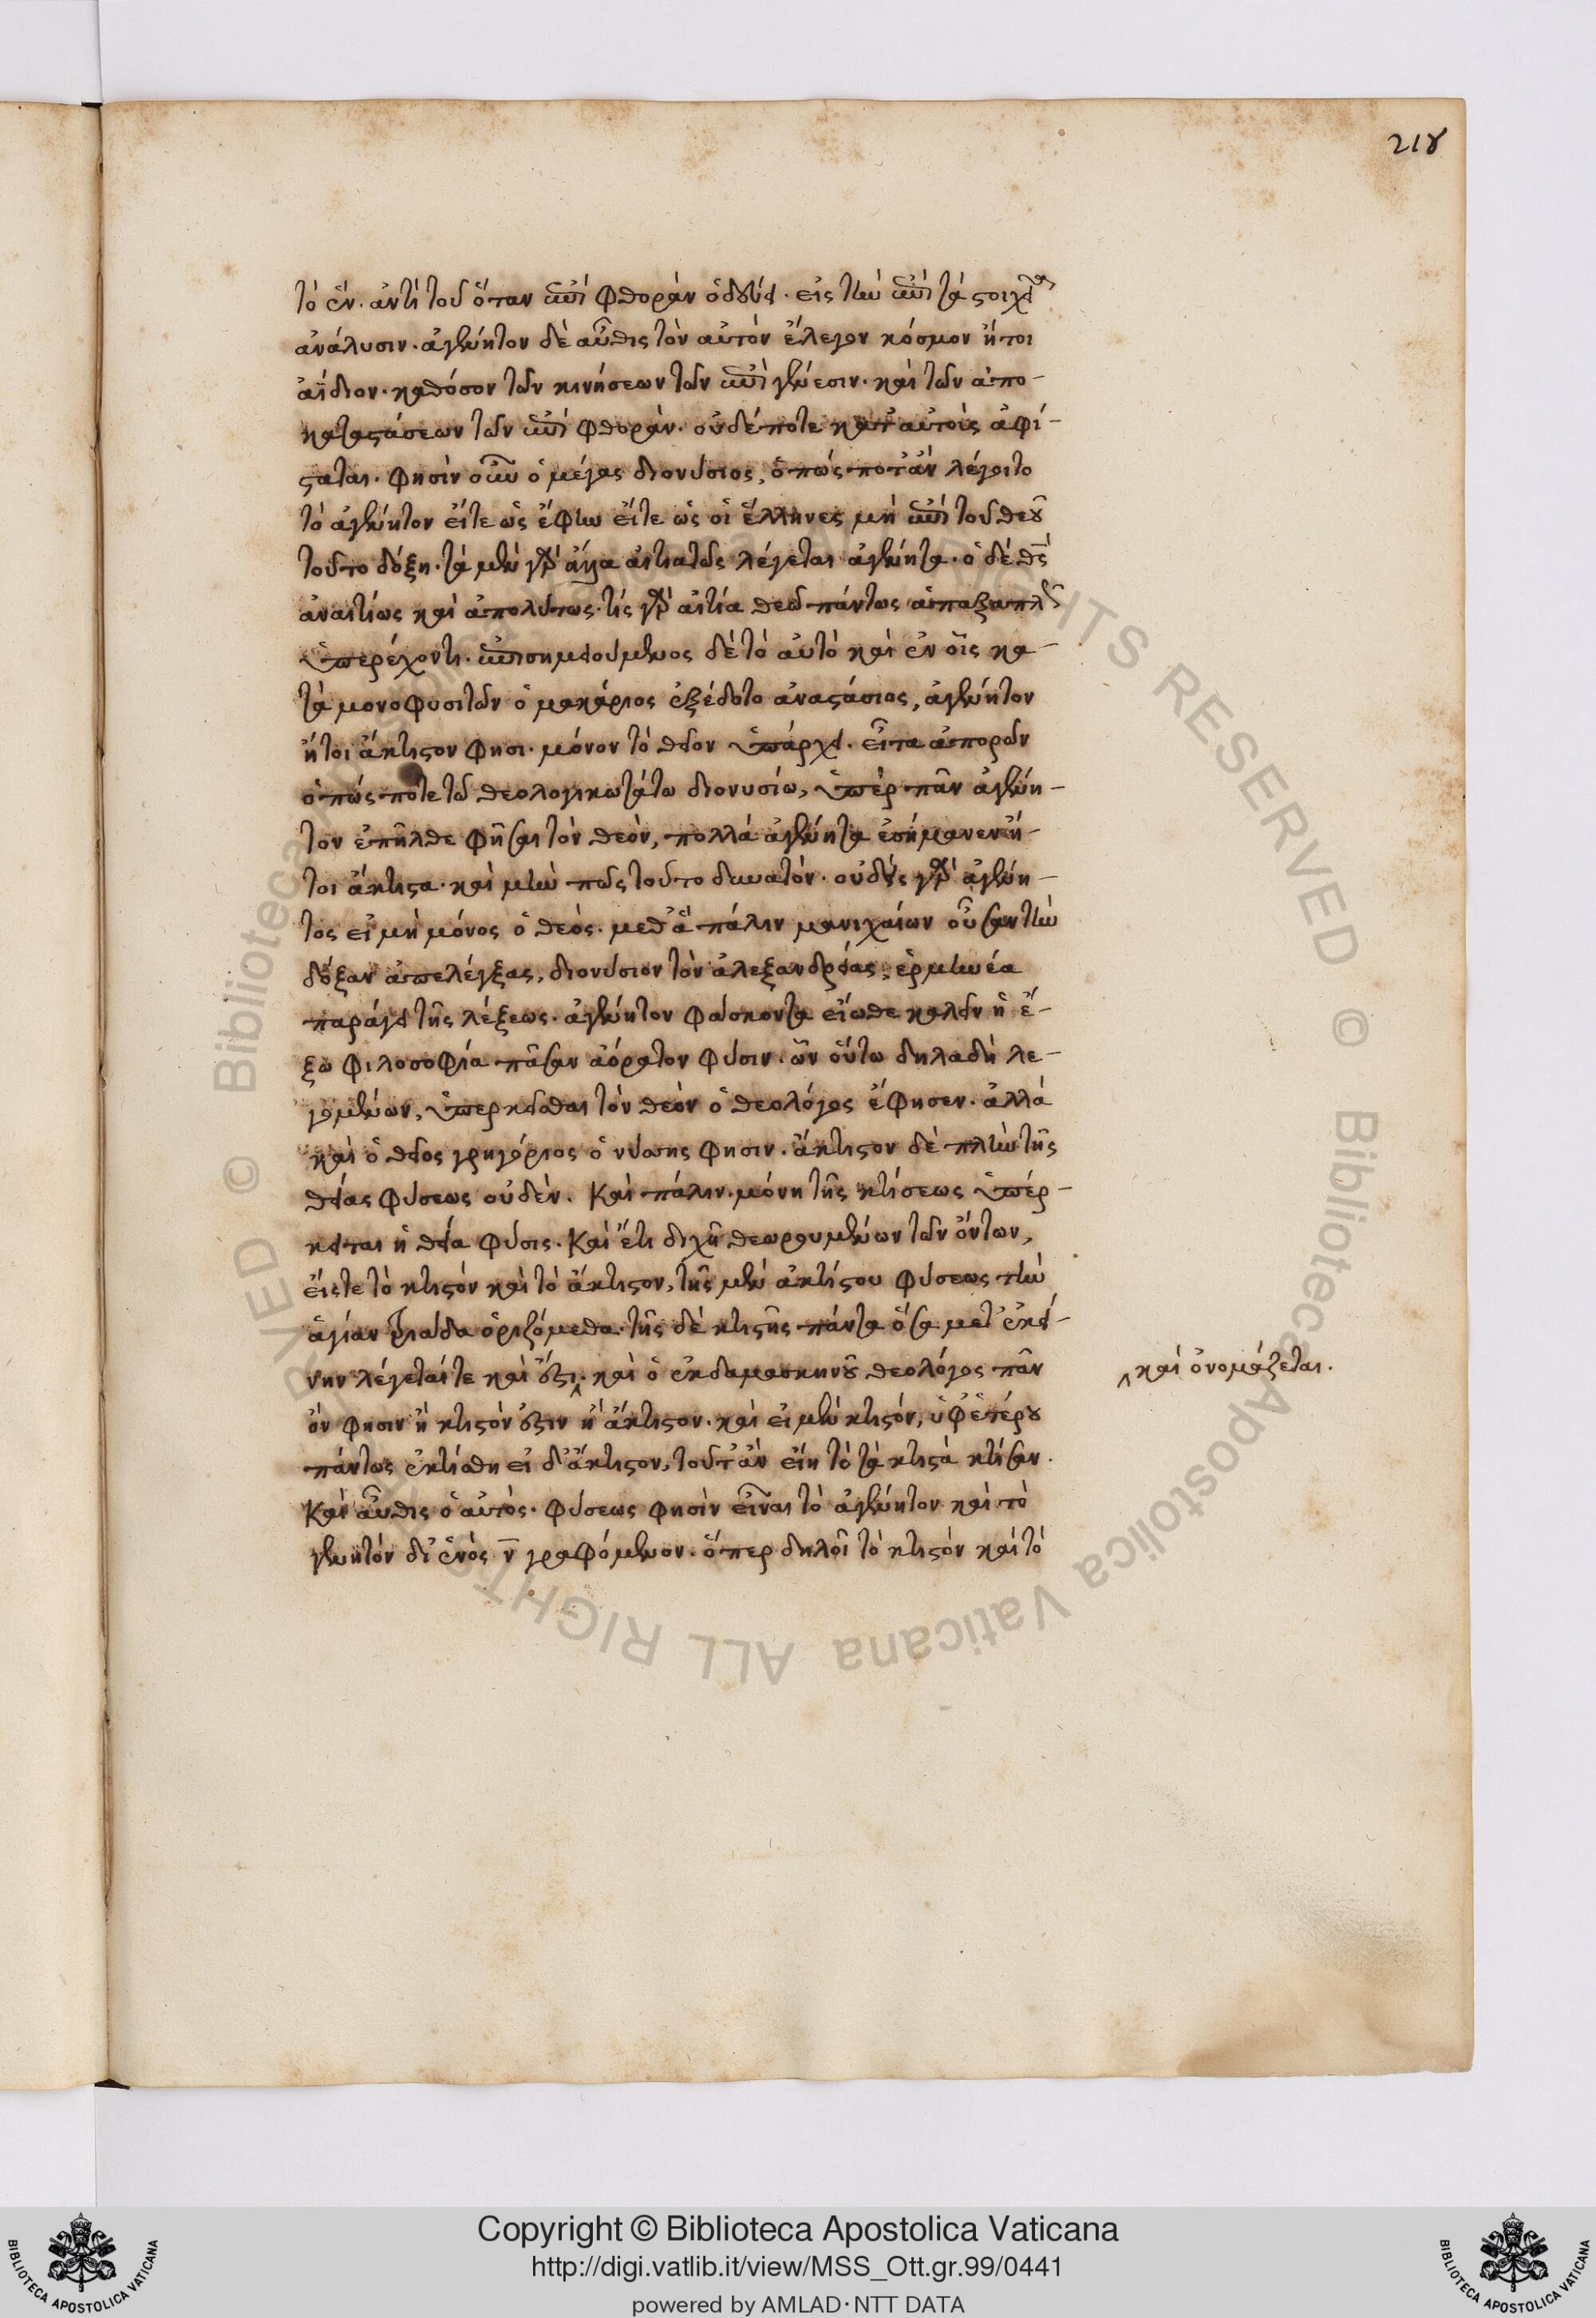 218
τὸ ἓν. ἀντὶ τοῦ ὅταν ἐπὶ φθορὰν ὁδεύει. εἰς τὴν ἐπὶ τὰ στοιχεῖα
ἀνάλυσιν. ἀγένητον δὲ αὖθις τὸν αὐτὸν ἔλεγον κόσμον ἤτοι
ἀΐδιον. καθόσον τῶν κινήσεων τῶν ἐπὶ γένεσιν. καὶ τῶν ἀπο-
καταστάσεων τῶν ἐπὶ φθορὰν. οὐδέποτε κατ' αὐτοὺς ἀφί-
σταται. φησὶν οὖν ὁ μέγας διονύσιος, ὅπώς ποτ' ἂν λέγοιτο
τὸ ἀγένητον εἴτε ὡς ἔφην εἴτε ὡς οἱ ἕλληνες μὴ ἐπὶ τοῦ θεοῦ
τοῦτο δόξῃ. τὰ μὲν γὰρ ἄλλα αἰτιατῶς λέγεται ἀγένητα. ὁ δὲ θς
ἀναιτίως καὶ ἀπολύτως. τίς γὰρ αἰτία θεῶ πάντως ἁπαξαπλῶς
ὑπερέχοντι. ἐπισημειούμενος δὲ τὸ αὐτὸ καὶ ἐν οἷς κα-
τὰ μονοφυσιτῶν ὁ μακάριος ἐξέδοτο ἀναστάσιος, ἀγένητον
ἤτοι ἄκτιστον φησι. μόνον τὸ θεῖον ὑπάρχει. εἶτα ἀπορῶν
ὁπώς ποτε τῶ θεολογικωτάτω διονυσίω, ὑπὲρ πᾶν ἀγένη-
τον ἐπῆλθε φῆσαι τὸν θεὸν, πολλὰ ἀγένητα ἐσήμανεν ἤ-
τοι ἄκτιστα. καὶ μὴν πῶς τοῦτο δυνατὸν. οὐδεὶς γὰρ ἀγένη-
τος εἰ μὴ μόνος ὁ θεός. μεθ' ἃ πάλιν μανιχαίων οὖσαν τὴν
δόξαν ἀπελέγξας, διονύσιον τὸν ἀλεξανδρείας, ἑρμηνέα
παράγει τῆς λέξεως. ἀγένητον φάσκοντα εἴωθε καλεῖν ἡ ἔ-
ξω φιλοσοφία πᾶσαν ἀόρατον φύσιν. ὧν οὕτω δηλαδὴ λε-
γομένων, ὑπερκεῖσθαι τὸν θεὸν ὁ θεολόγος ἔφησεν. ἀλλὰ
καὶ ὁ θεῖος γρηγόριος ὁ νύσσης φησιν. ἄκτιστον δὲ πλὴν τῆς
θείας φύσεως οὐδὲν. Καὶ πάλιν. μόνη τῆς κτίσεως ὑπέρ-
κειται ἡ θεία φύσις. Καὶ ἔτι διχῆ θεωρουμένων τῶν ὄντων,
εἴς τε τὸ κτιστὸν καὶ τὸ ἄκτιστον, τῆς μὲν ἀκτίστου φύσεως τὴν
ἁγίαν τριάδα ὁριζόμεθα. τῆς δὲ κτιστῆς πάντα ὅσα μετ' ἐκεί-
νην λέγεταί τε καὶ ἔστι. καὶ ὁ ἐκ δαμασκηνοῦ θεολόγος πᾶν
καὶ ὀνομάζεται.
ὄν φησιν ἢ κτιστόν ἐστιν ἢ ἄκτιστον. καὶ εἰ μὲν κτιστόν, ὑφ' ἑτέρου
πάντως ἐκτίσθη εἰ δ' ἄκτιστον, τοῦτ' ἂν εἴη τὸ τὰ κτιστὰ κτίσαν.
Καὶ αὖθις ὁ αὐτός. φύσεως φησὶν εἶναι τὸ ἀγένητον καὶ τὸ
γενητόν δι' ἑνὸς ν γραφόμενον. ὅπερ δηλοῖ τὸ κτιστόν καὶ τὸ
Copyright © Biblioteca Apostolica Vaticana
http://digi.vatlib.it/view/MSS_Ott.gr.99/0441
powered by AMLAD·NTT DATA
BIBLIOTECA APOSTOLICA VATICANA
BIBLIOTECA APOSTOLICA VATICANA